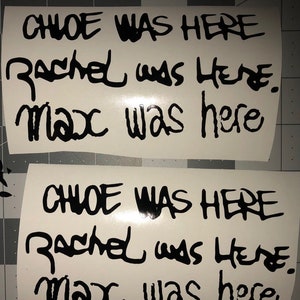 CHLOE WAS HERE
RACHEL WAS HERE.
max was here
CHLOE WAS HERE
RACHEL WAS HERE.
max was here